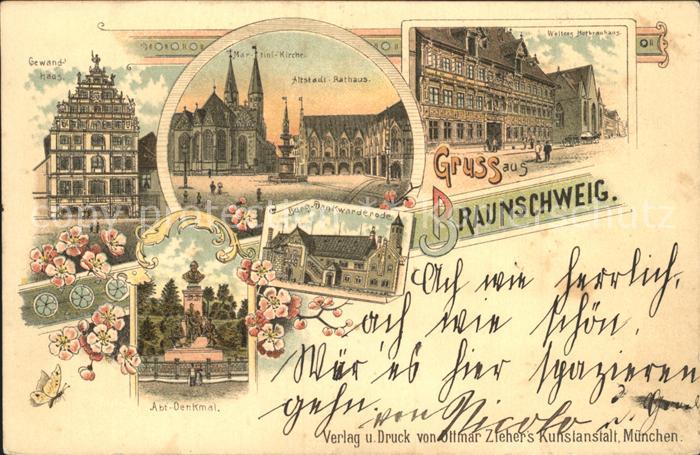 Gewand
haus.
Martini-Kirche.
Altstadt-Rathaus.
Welfen Hofbräuhaus.
Gruss aus
BRAUNSCHWEIG.
Burg-Dankwarderode.
Abt-Denkmal.
Ach wie herrlich,
ach wie schön.
Wär' es hier spazieren
gehn von Nicolo u.
Verlag u. Druck von Ottmar Zieher's Kunstanstalt, München.